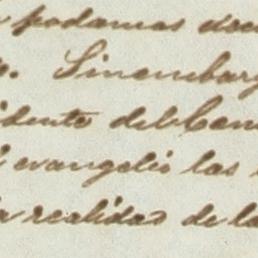 podamos
Sinembarg
idente del Cen
evangelio las
a realidad de la